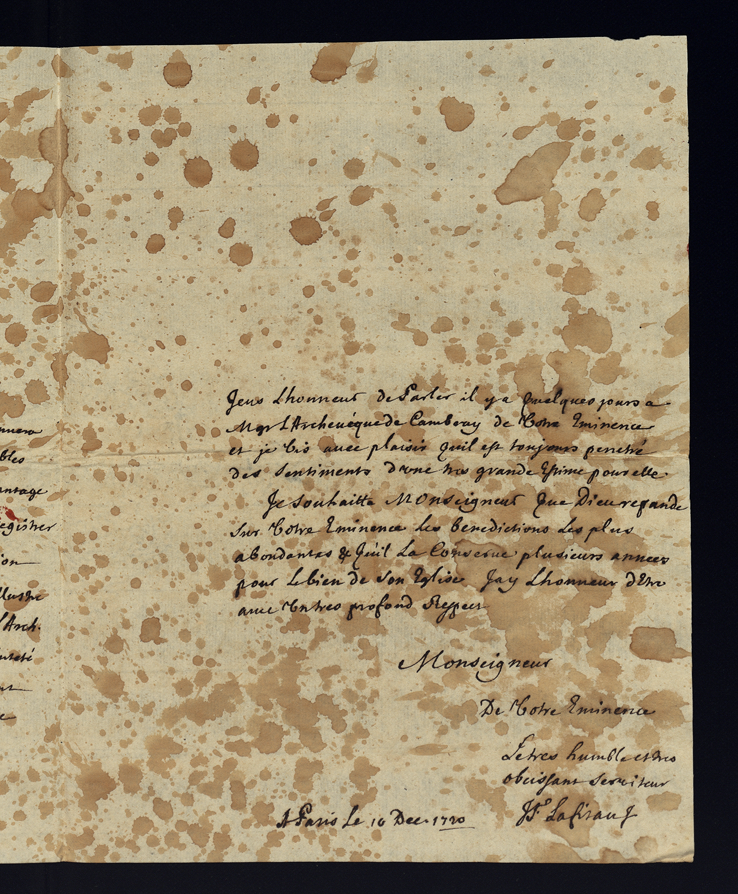 nnera
bles
antage
egistrer
ion
llustre
l'Arch.
Jeus Lhonneur de Parler il y a quelques jours a
Mgr L'Archevéque de Cambray de Votre Eminence
et je vis avec plaisir quil est toujours penetré
des sentiments d'une tres grande Estime pour elle.
Je souhaitte Monseigneur que Dieu repande
sur Votre Eminence les benedictions les plus
abondantes & quil La Conserve plusieurs annees
pour Le bien de son Eglise Jay Lhonneur d'Etre
avec Un tres profond Respect
Monseigneur
De Votre Eminence
Le tres humble et tres
obeissant serviteur
A Paris Le 10 Dec. 1720
JF Lafitau J